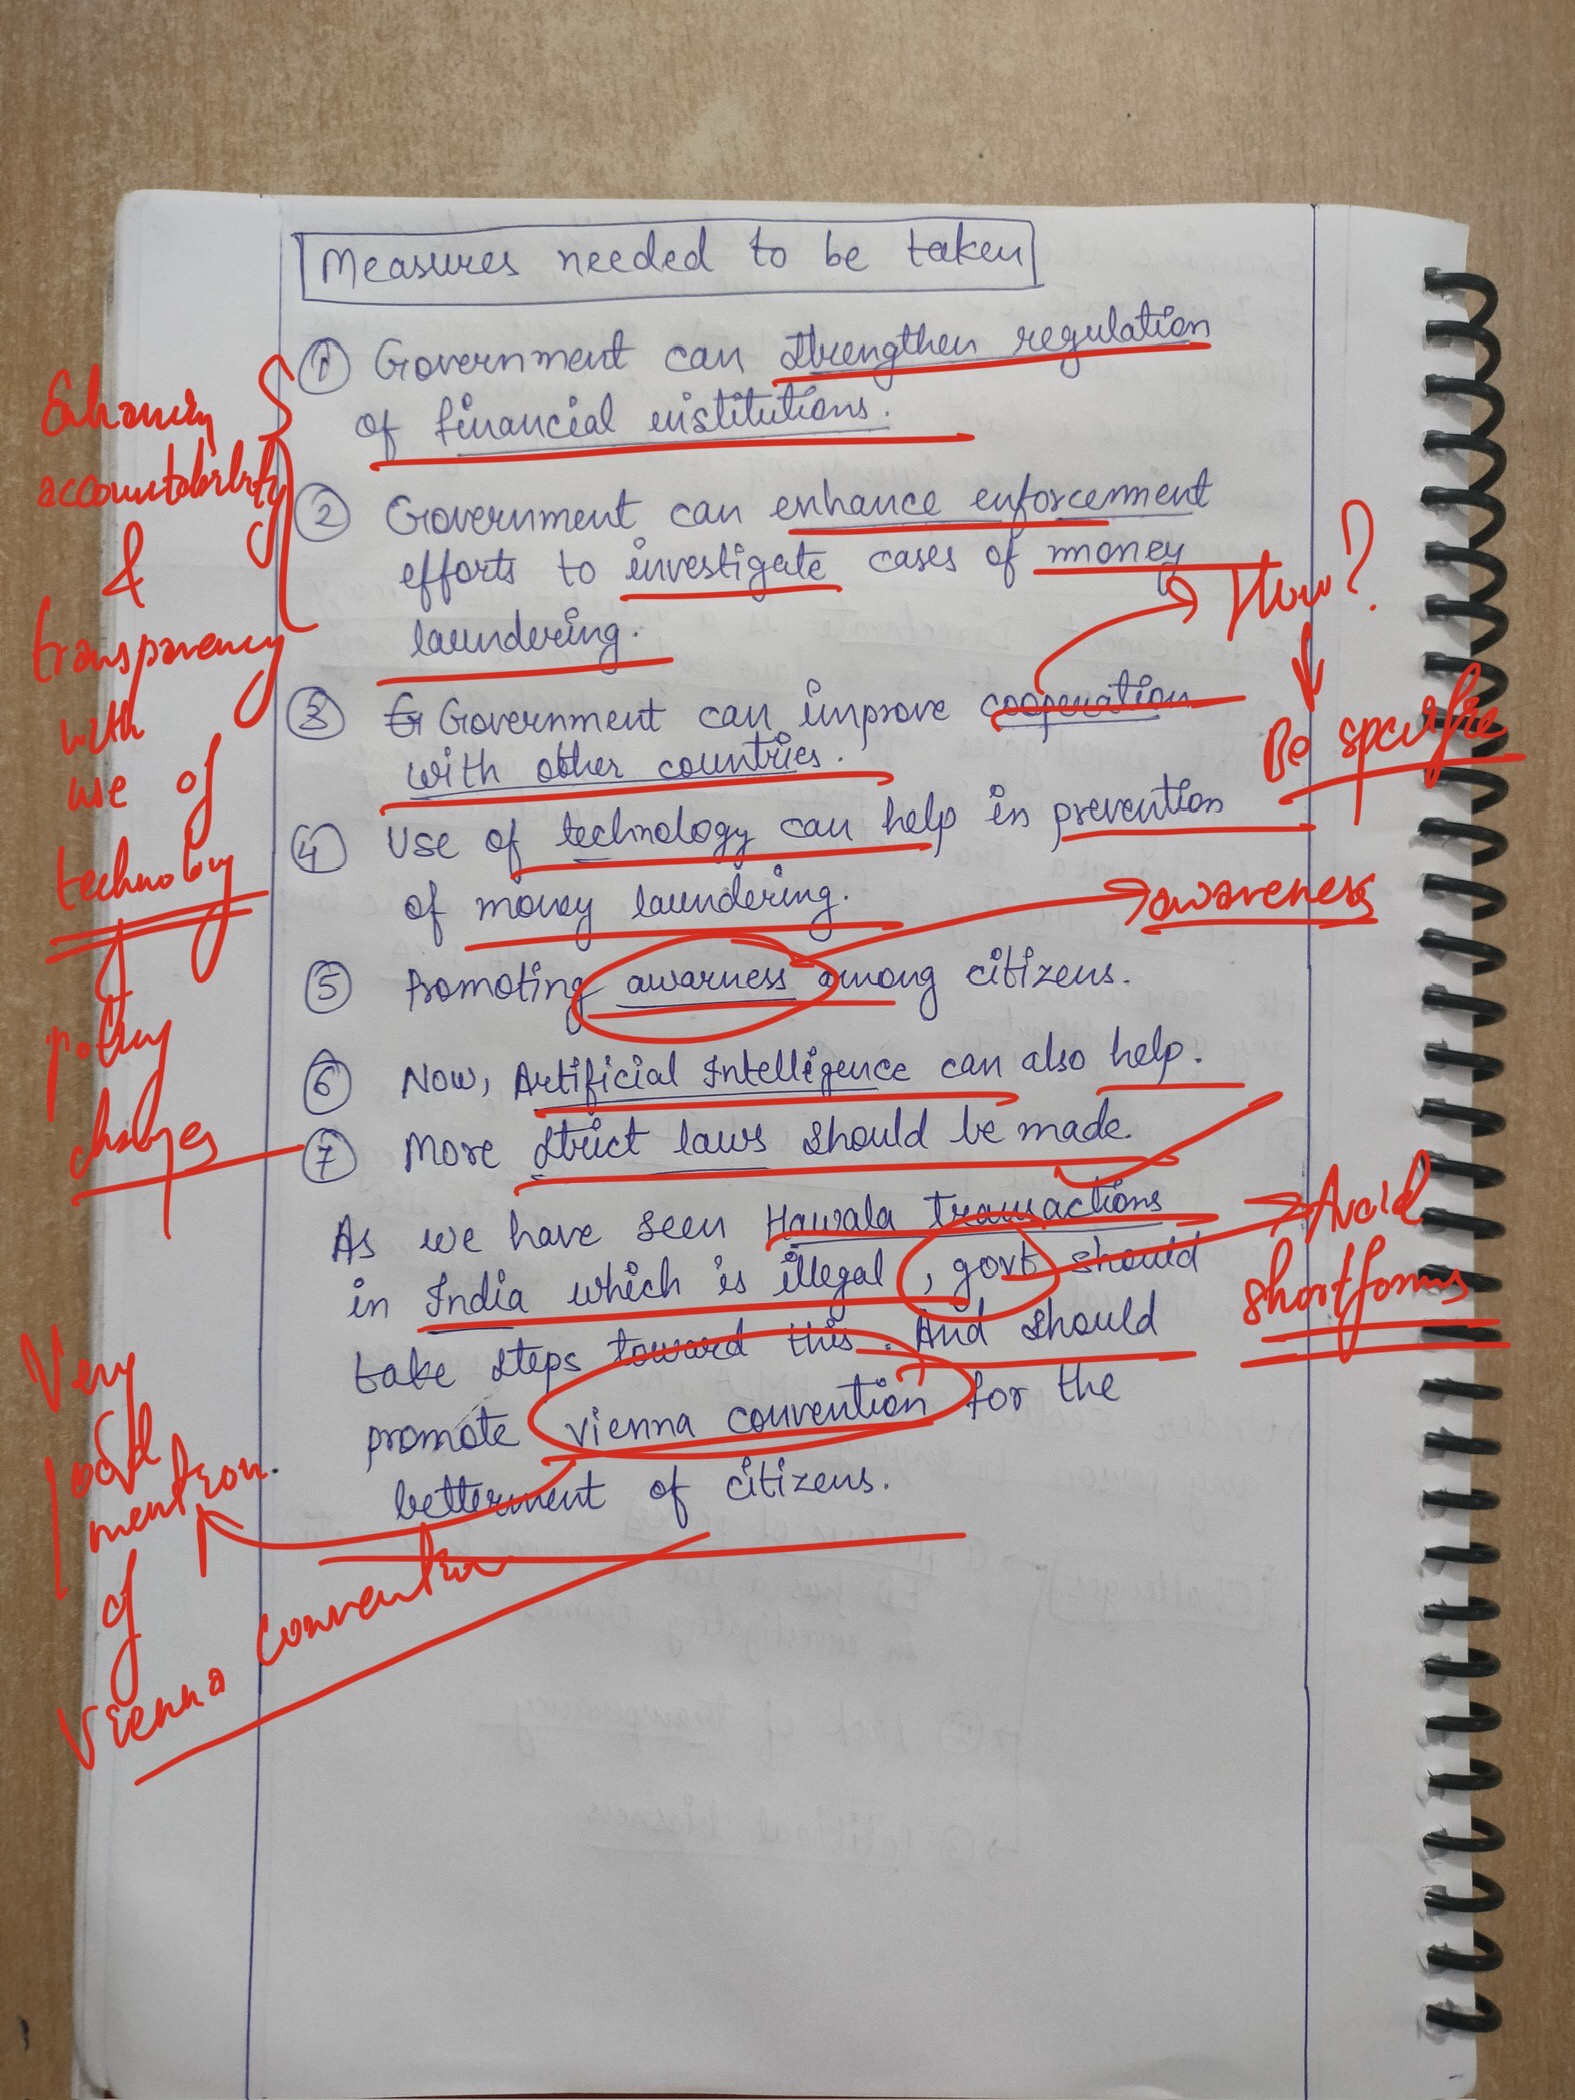 Measures needed to be taken
① Government can strengthen regulation
of financial institutions.
② Government can enhance enforcement
efforts to investigate cases of money
laundering.
③ Government can improve cooperation
with other countries.
④ Use of technology can help in prevention
of money laundering.
⑤ Promoting awarness among citizens.
⑥ Now, Artificial Intelligence can also help.
⑦ More strict laws should be made.
As we have seen Hawala transactions
in India which is illegal, govt should
take steps toward this. And should
promote vienna convention for the
betterment of citizens.
Enhancing
accountability
&
transparency
with
use of
technology
policy
changes
How?
Be specific
awareness
Avoid
shortforms
Very
good
mention
of
Vienna convention